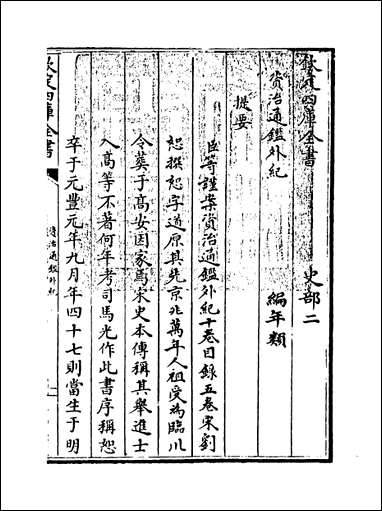 欽定四庫全書
史部二
資治通鑑外紀
編年類
提要
臣等謹案資治通鑑外紀十卷目錄五卷宋劉
恕撰恕字道原其先京兆萬年人祖受為臨川
令葬于高安因家焉宋史本傳稱其舉進士
入高等不著何年考司馬光作此書序稱恕
卒于元豐元年九月年四十七則當生于明
欽定四庫全書
資治通鑑外紀